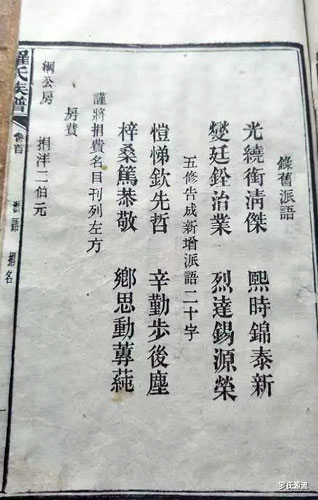 錄舊派語
光繞衛清傑 熙時錦泰新
燮廷銓治業 烈達錫源榮
五修告成新增派語二十字
愷悌欽先哲 辛勤步後塵
梓桑篤恭敬 鄉思動蓴蒓
謹將捐費名目刊列左方
房費
綱公房 捐洋二伯元
羅氏族譜 卷首 派語 捐名
罗氏源流